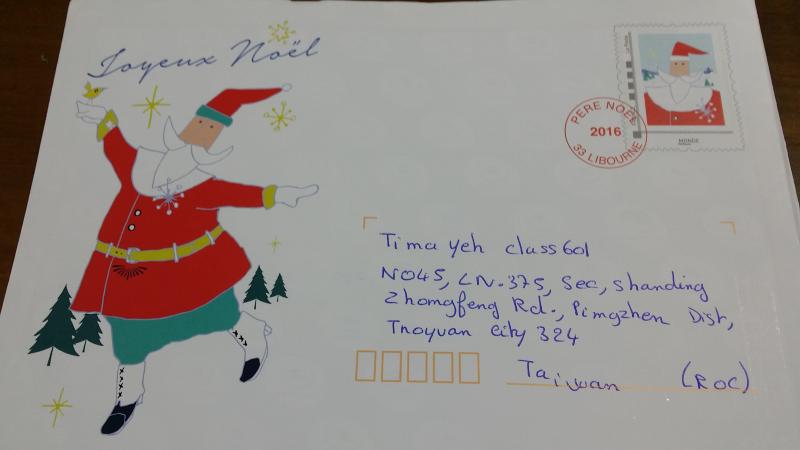 Joyeux Noël
PERE NOËL
2016
33 LIBOURNE
MONDE
Tima yeh class 601
NO45, LN.375, Sec, Shanding
Zhomgfeng Rd., Pimgzhen Dist,
Tnoyuan city 324
Taiwan (ROC)